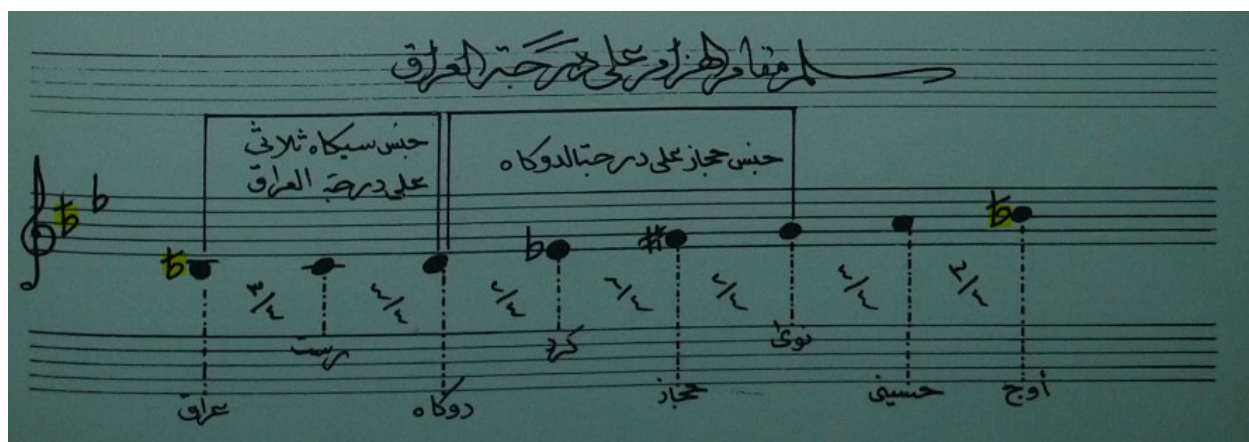 سلم مقام الهزام على درجة العراق
جنس سيكاه ثلاثي
على درجة العراق
جنس حجاز على درجة الدوكاه
٣/٤ ٤/٤ ٢/٤ ٦/٤ ٢/٤ ٤/٤ ٣/٤
رست كرد نوى
عراق دوكاه حجاز حسيني أوج